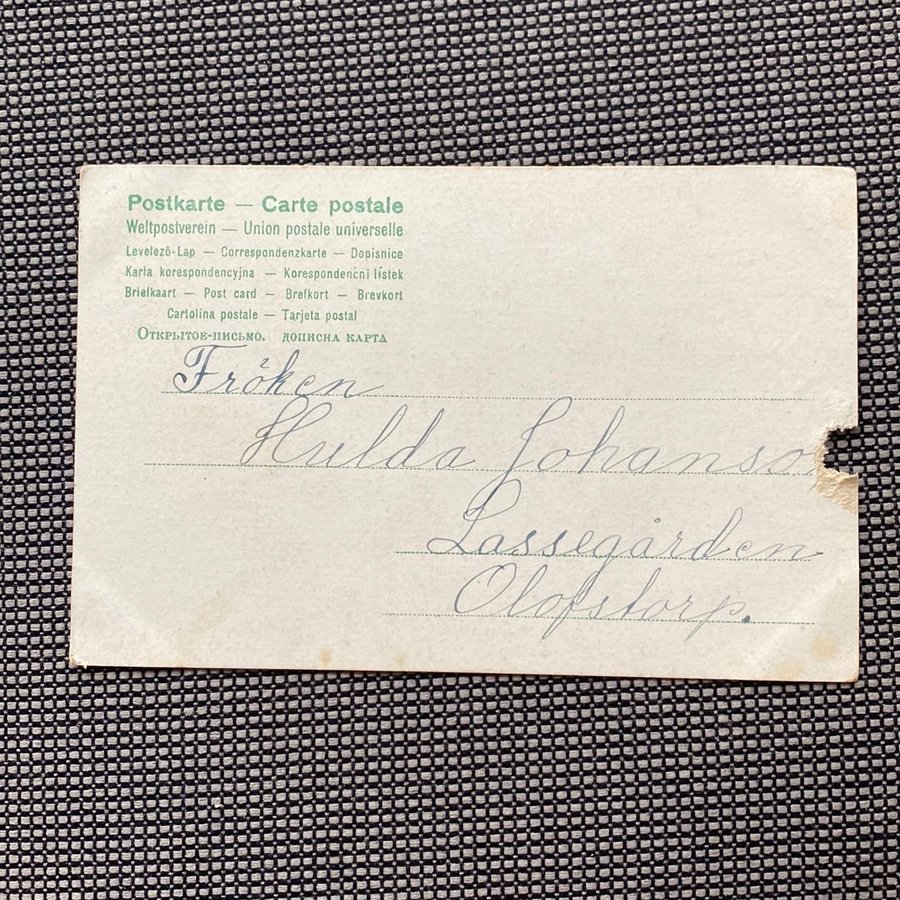 Postkarte — Carte postale
Weltpostverein — Union postale universelle
Levelezõ-Lap — Correspondenzkarte — Dopisnice
Karta korespondencyjna — Korespondencni lístek
Briefkaart — Post card — Brefkort — Brevkort
Cartolina postale — Tarjeta postal
Открытое-письмо. дописна карта
Fröken
Hulda Johanso
Lassegården
Olofstorp.